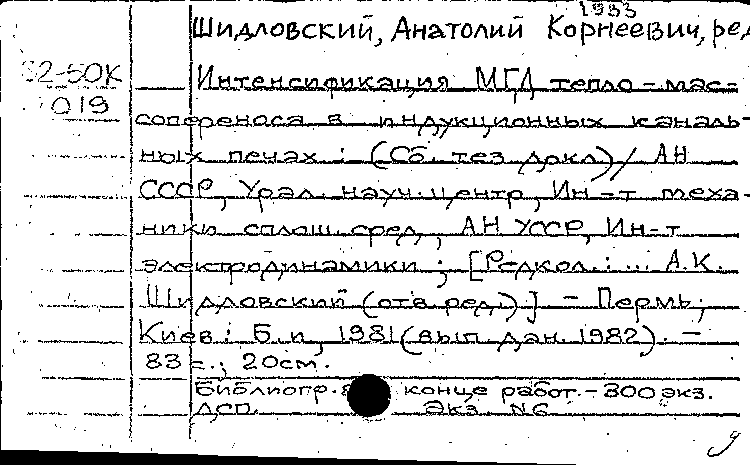 1933
Шидловский, Анатолий Корнеевич, ред
82-50К
019
Интенсификация МГД тепло-мас-
сопереноса в индукционных каналь-
ных печах : (Сб. тез. докл.) / АН
СССР, Урал. науч. центр, Ин-т меха-
ники сплош. сред, АН УССР, Ин-т
электродинамики ; [Редкол.: ... А.К.
Шидловский (отв. ред.)]. - Пермь;
Киев : Б. и., 1981 (вып. дан. 1982). -
83 с.; 20 см.
Библиогр. в конце работ. - 300 экз.
ДСП. Экз. N6
9